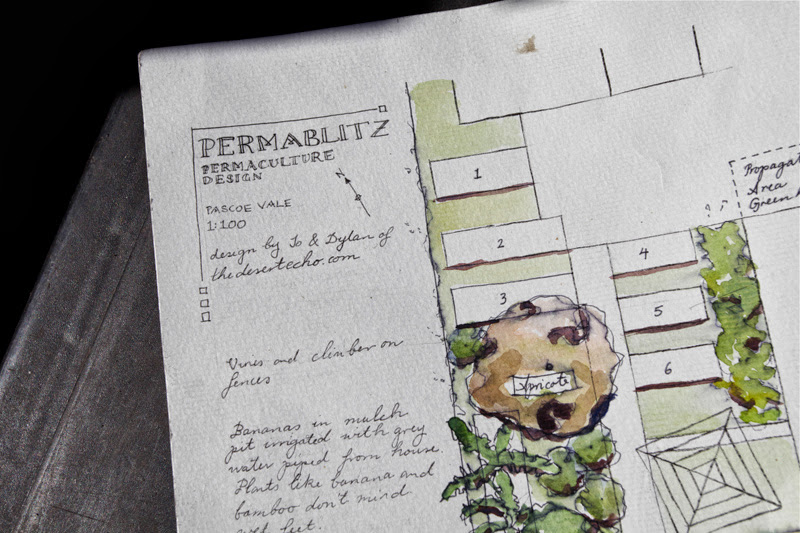 PERMABLITZ
PERMACULTURE
DESIGN
PASCOE VALE
1:100
design by Jo & Dylan of
thedesertecho.com
Vines and climber on
fences
Bananas in mulch
pit irrigated with grey
water piped from house.
Plants like banana and
bamboo don't mind
wet feet.
N
1
2
3
4
5
6
Apricots
Propagat
Area
Green